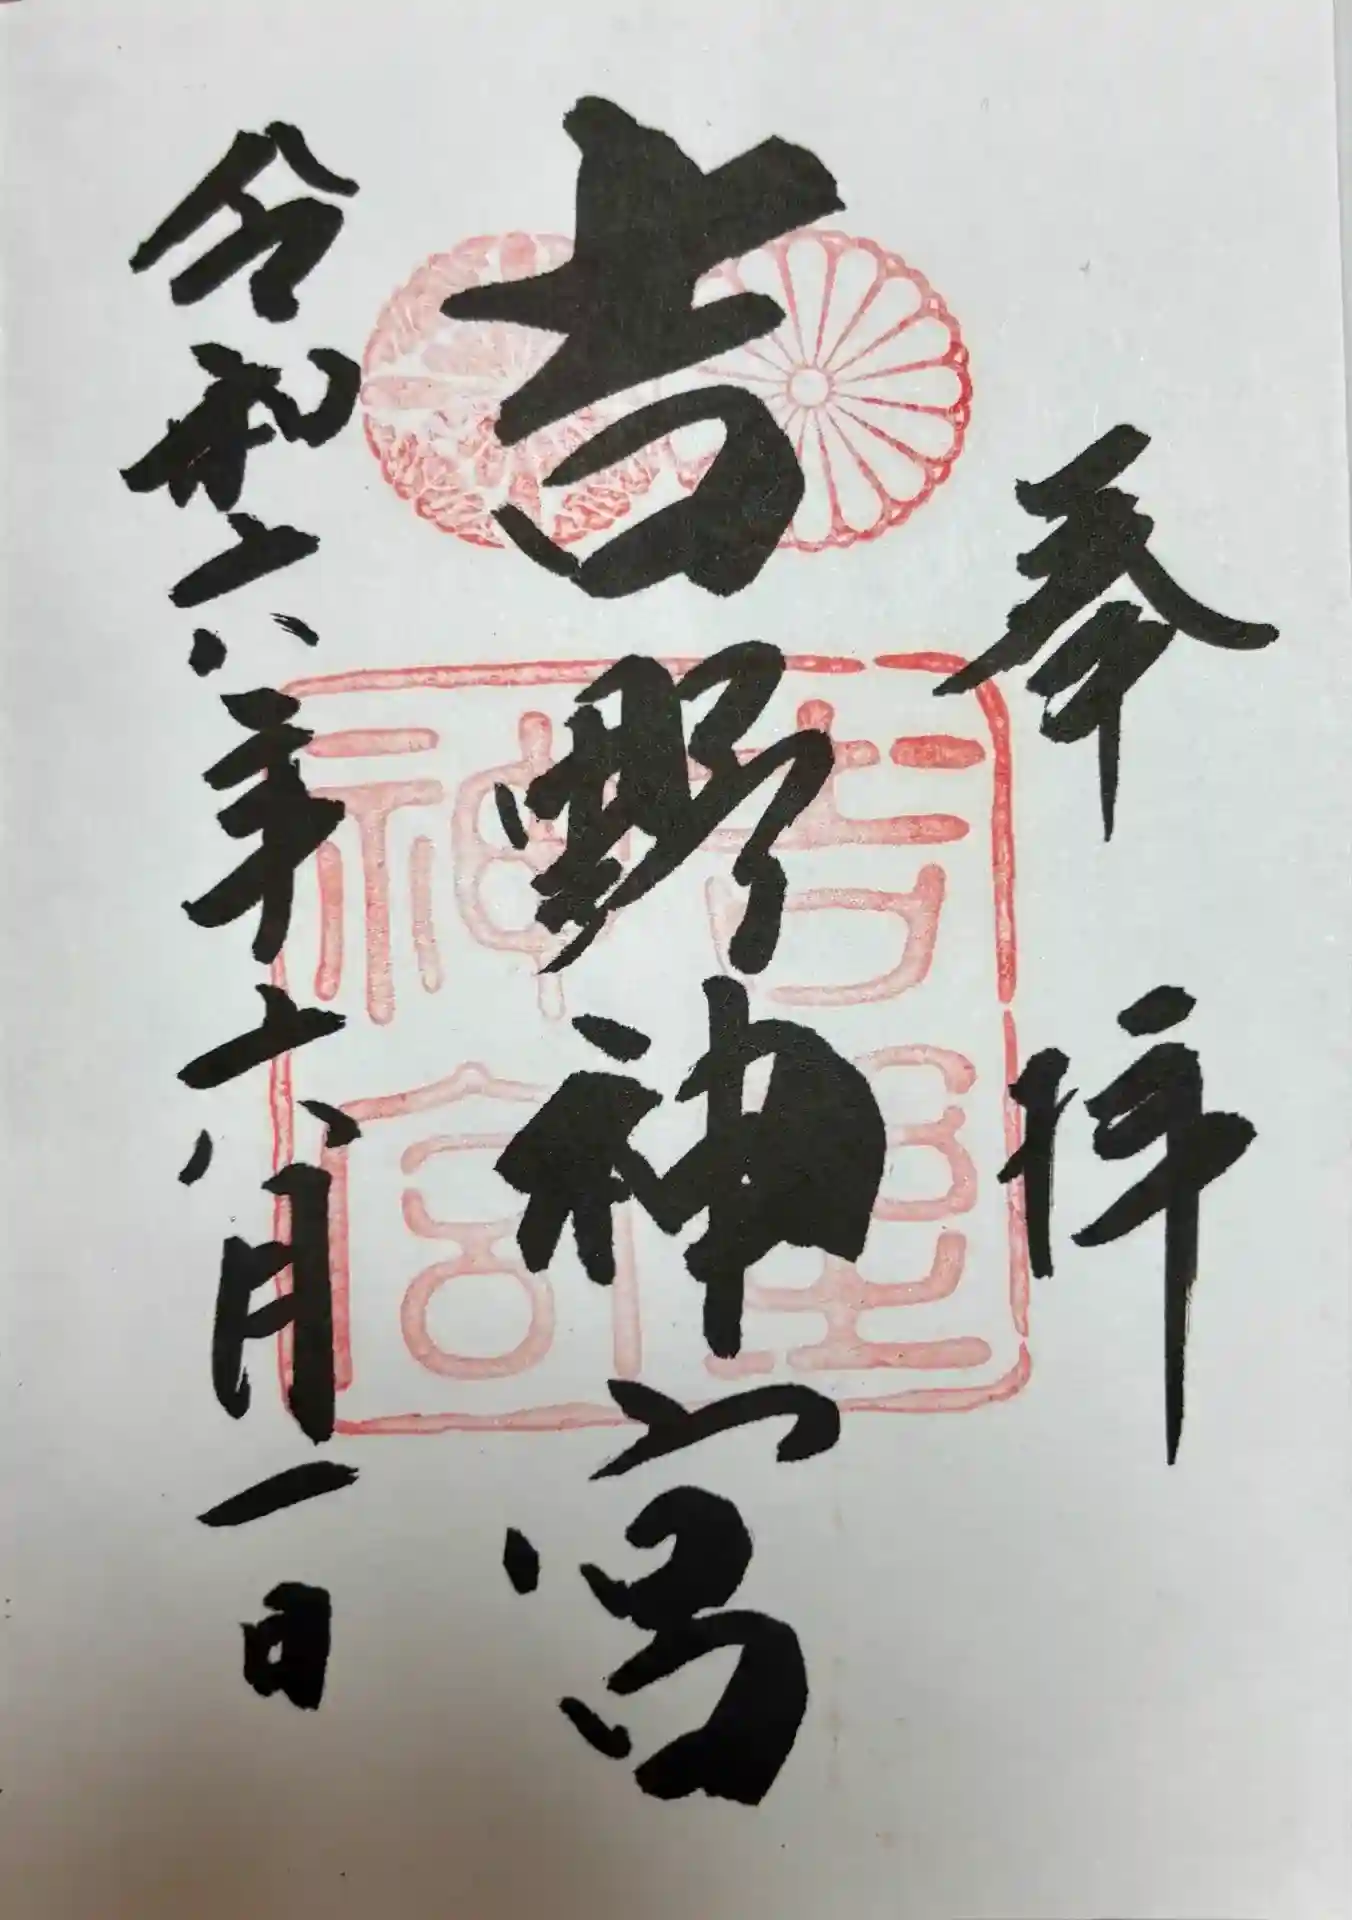 奉拝
吉野神宮
令和六年六月一日
吉野神宮